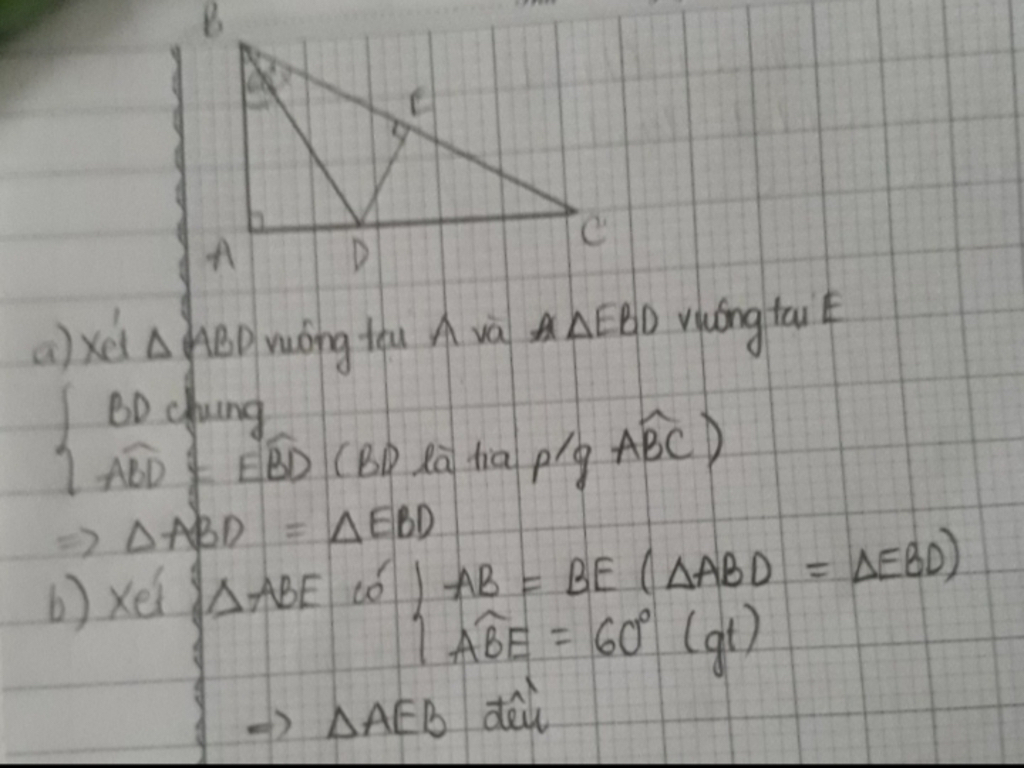 B
E
A
D
C
a) Xét Δ ABD vuông tại A và ΔEBD vuông tại E
{ BD chung
{ ABD̂ = EBD̂ (BD là tia p/g ABĈ)
=> ΔABD = ΔEBD
b) Xét ΔABE có { AB = BE (ΔABD = ΔEBD)
{ ABÊ = 60° (gt)
=> ΔAEB đều